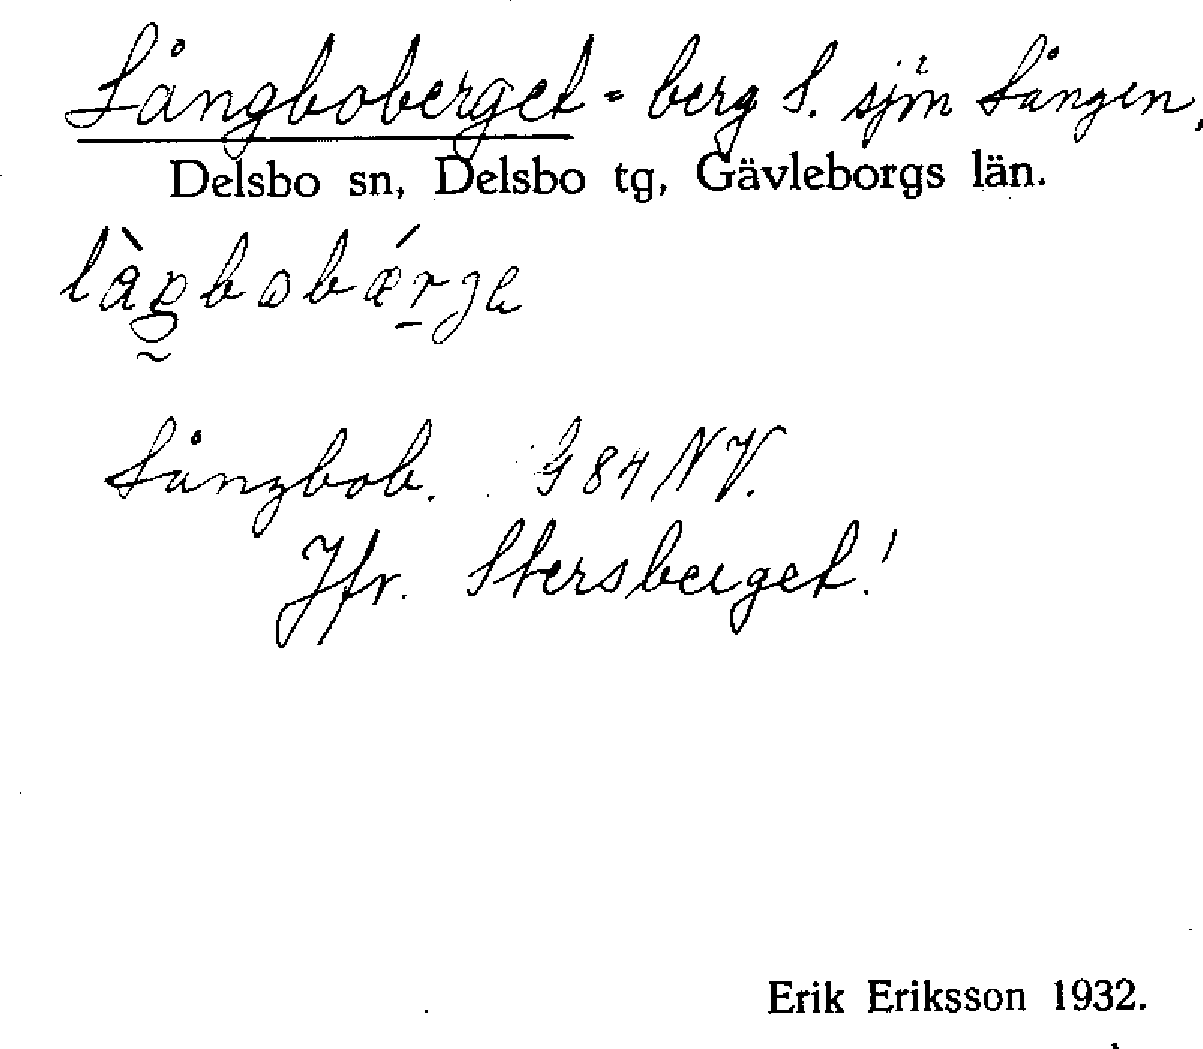 Långboberget = berg S. sjön Lången,
Delsbo sn, Delsbo tg, Gävleborgs län.
Långbob. G84NV.
Jfr. Stersberget!
Erik Eriksson 1932.